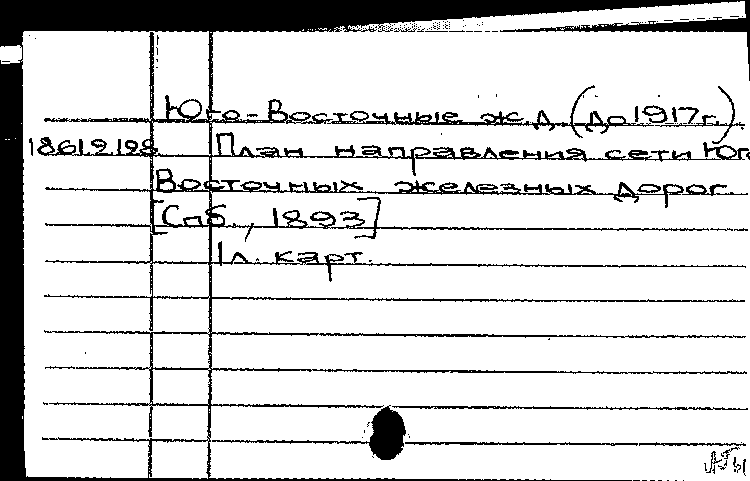 Юго-Восточные ж.д. (до 1917г.)
18619198 План направления сети Юго
Восточных железных дорог.
[Спб., 1893]
1 л. карт.